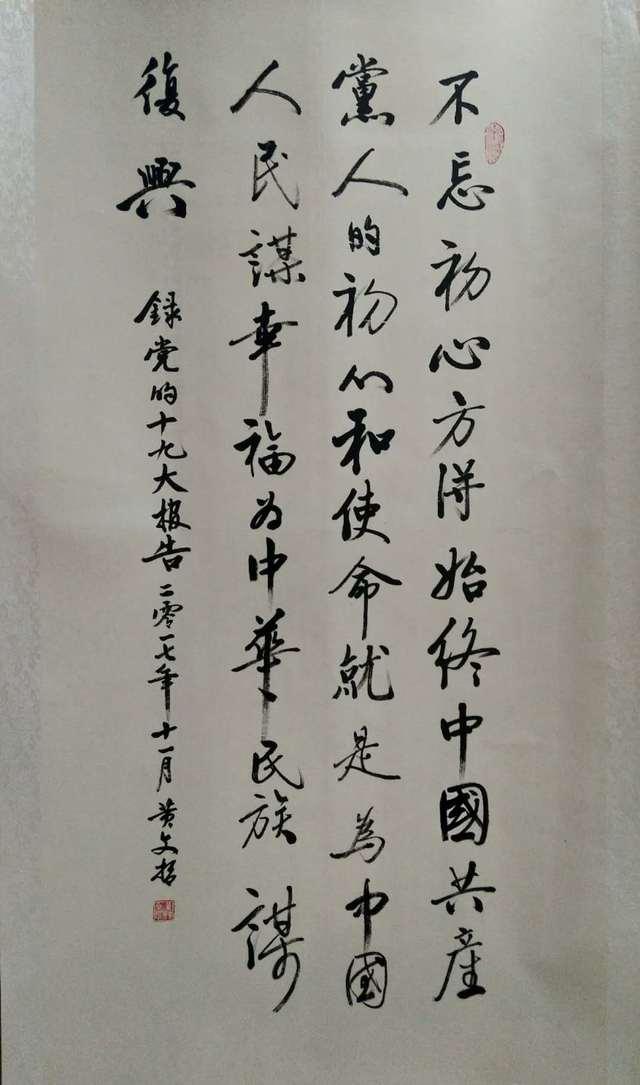 不忘初心方得始终中國共產
黨人的初心和使命就是為中國
人民謀幸福为中華民族謀
復興
録党的十九大报告二零一七年十一月黄文哲